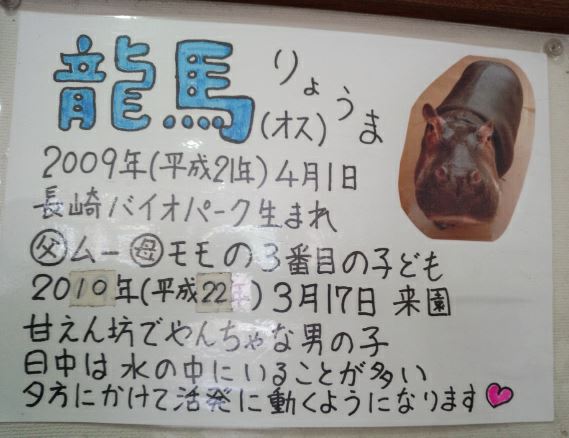 龍馬 りょうま
(オス)
2009年(平成21年)4月1日
長崎バイオパーク生まれ
父ムー 母モモの3番目の子ども
2010年(平成22年)3月17日 来園
甘えん坊でやんちゃな男の子
日中は水の中にいることが多い
夕方にかけて活発に動くようになります